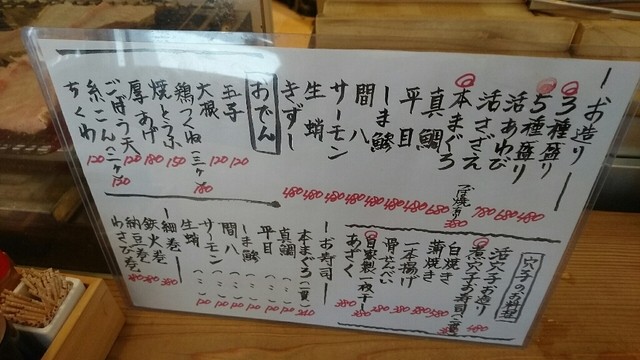 お造り
3種盛り 480
5種盛り 680
活あわび 780
活さざえ
つぼ焼き 380
本まぐろ 680
真鯛 480
平目 480
しま鯵 480
間八 480
サーモン 480
生蛸 480
きずし 480
おでん
玉子 120
大根 120
鶏つくね(三ヶ)
焼とうふ 150
厚あげ 180
ごぼう天 120
糸こん(二ヶ) 120
ちくわ 120
穴子のお料理
活穴子お造り 480
煮穴子お寿司(二貫)
白焼き 380
蒲焼き 380
一本揚げ 380
骨せんべい 380
自家製一夜干し 380
あざく 380
お寿司
本まぐろ(一貫) 240
真鯛(〃) 120
平目(〃) 120
しま鯵(〃) 120
間八(〃) 120
サーモン(〃) 120
生蛸(〃) 120
細巻
鉄火巻 380
納豆巻 280
わさび巻 280